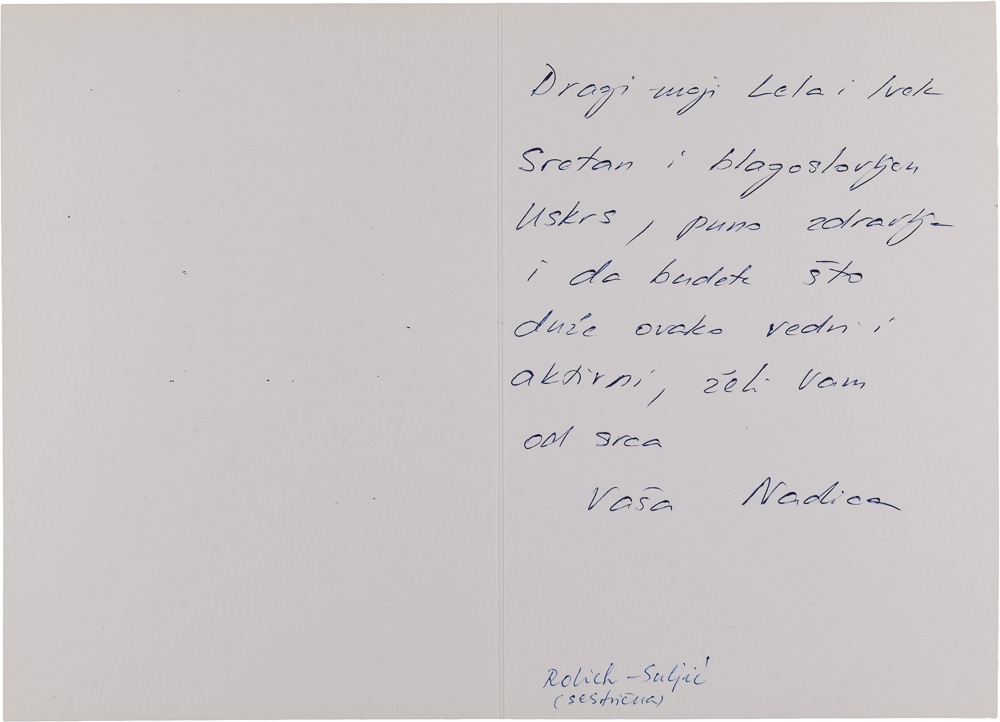 Dragi moji Lela i Ivek
Sretan i blagoslovljen
Uskrs, puno zdravlja
i da budete što
duže ovako vedri i
aktivni, želi Vam
od srca
Vaša Nadica
Rolich-Suljić
(sestrična)